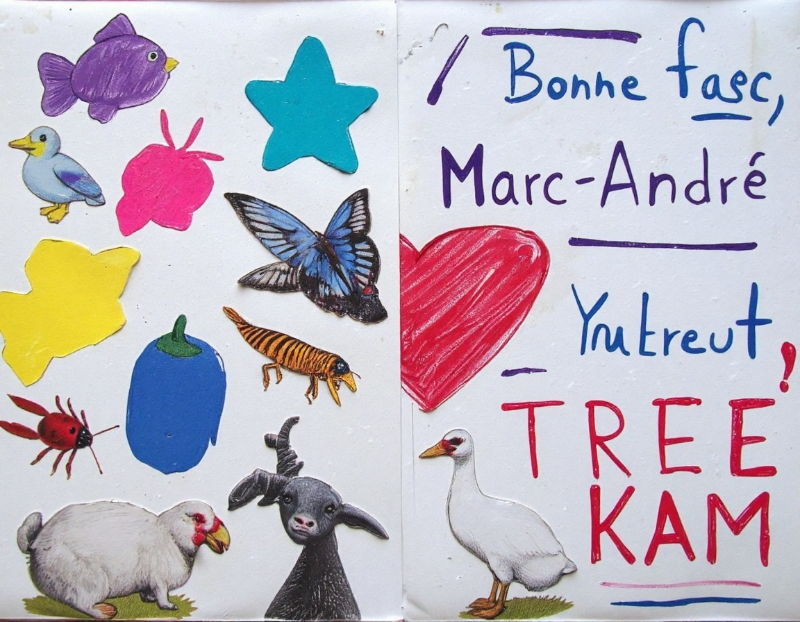 Bonne fasc,
Marc-André
Yrutreut
TREE!
KAM